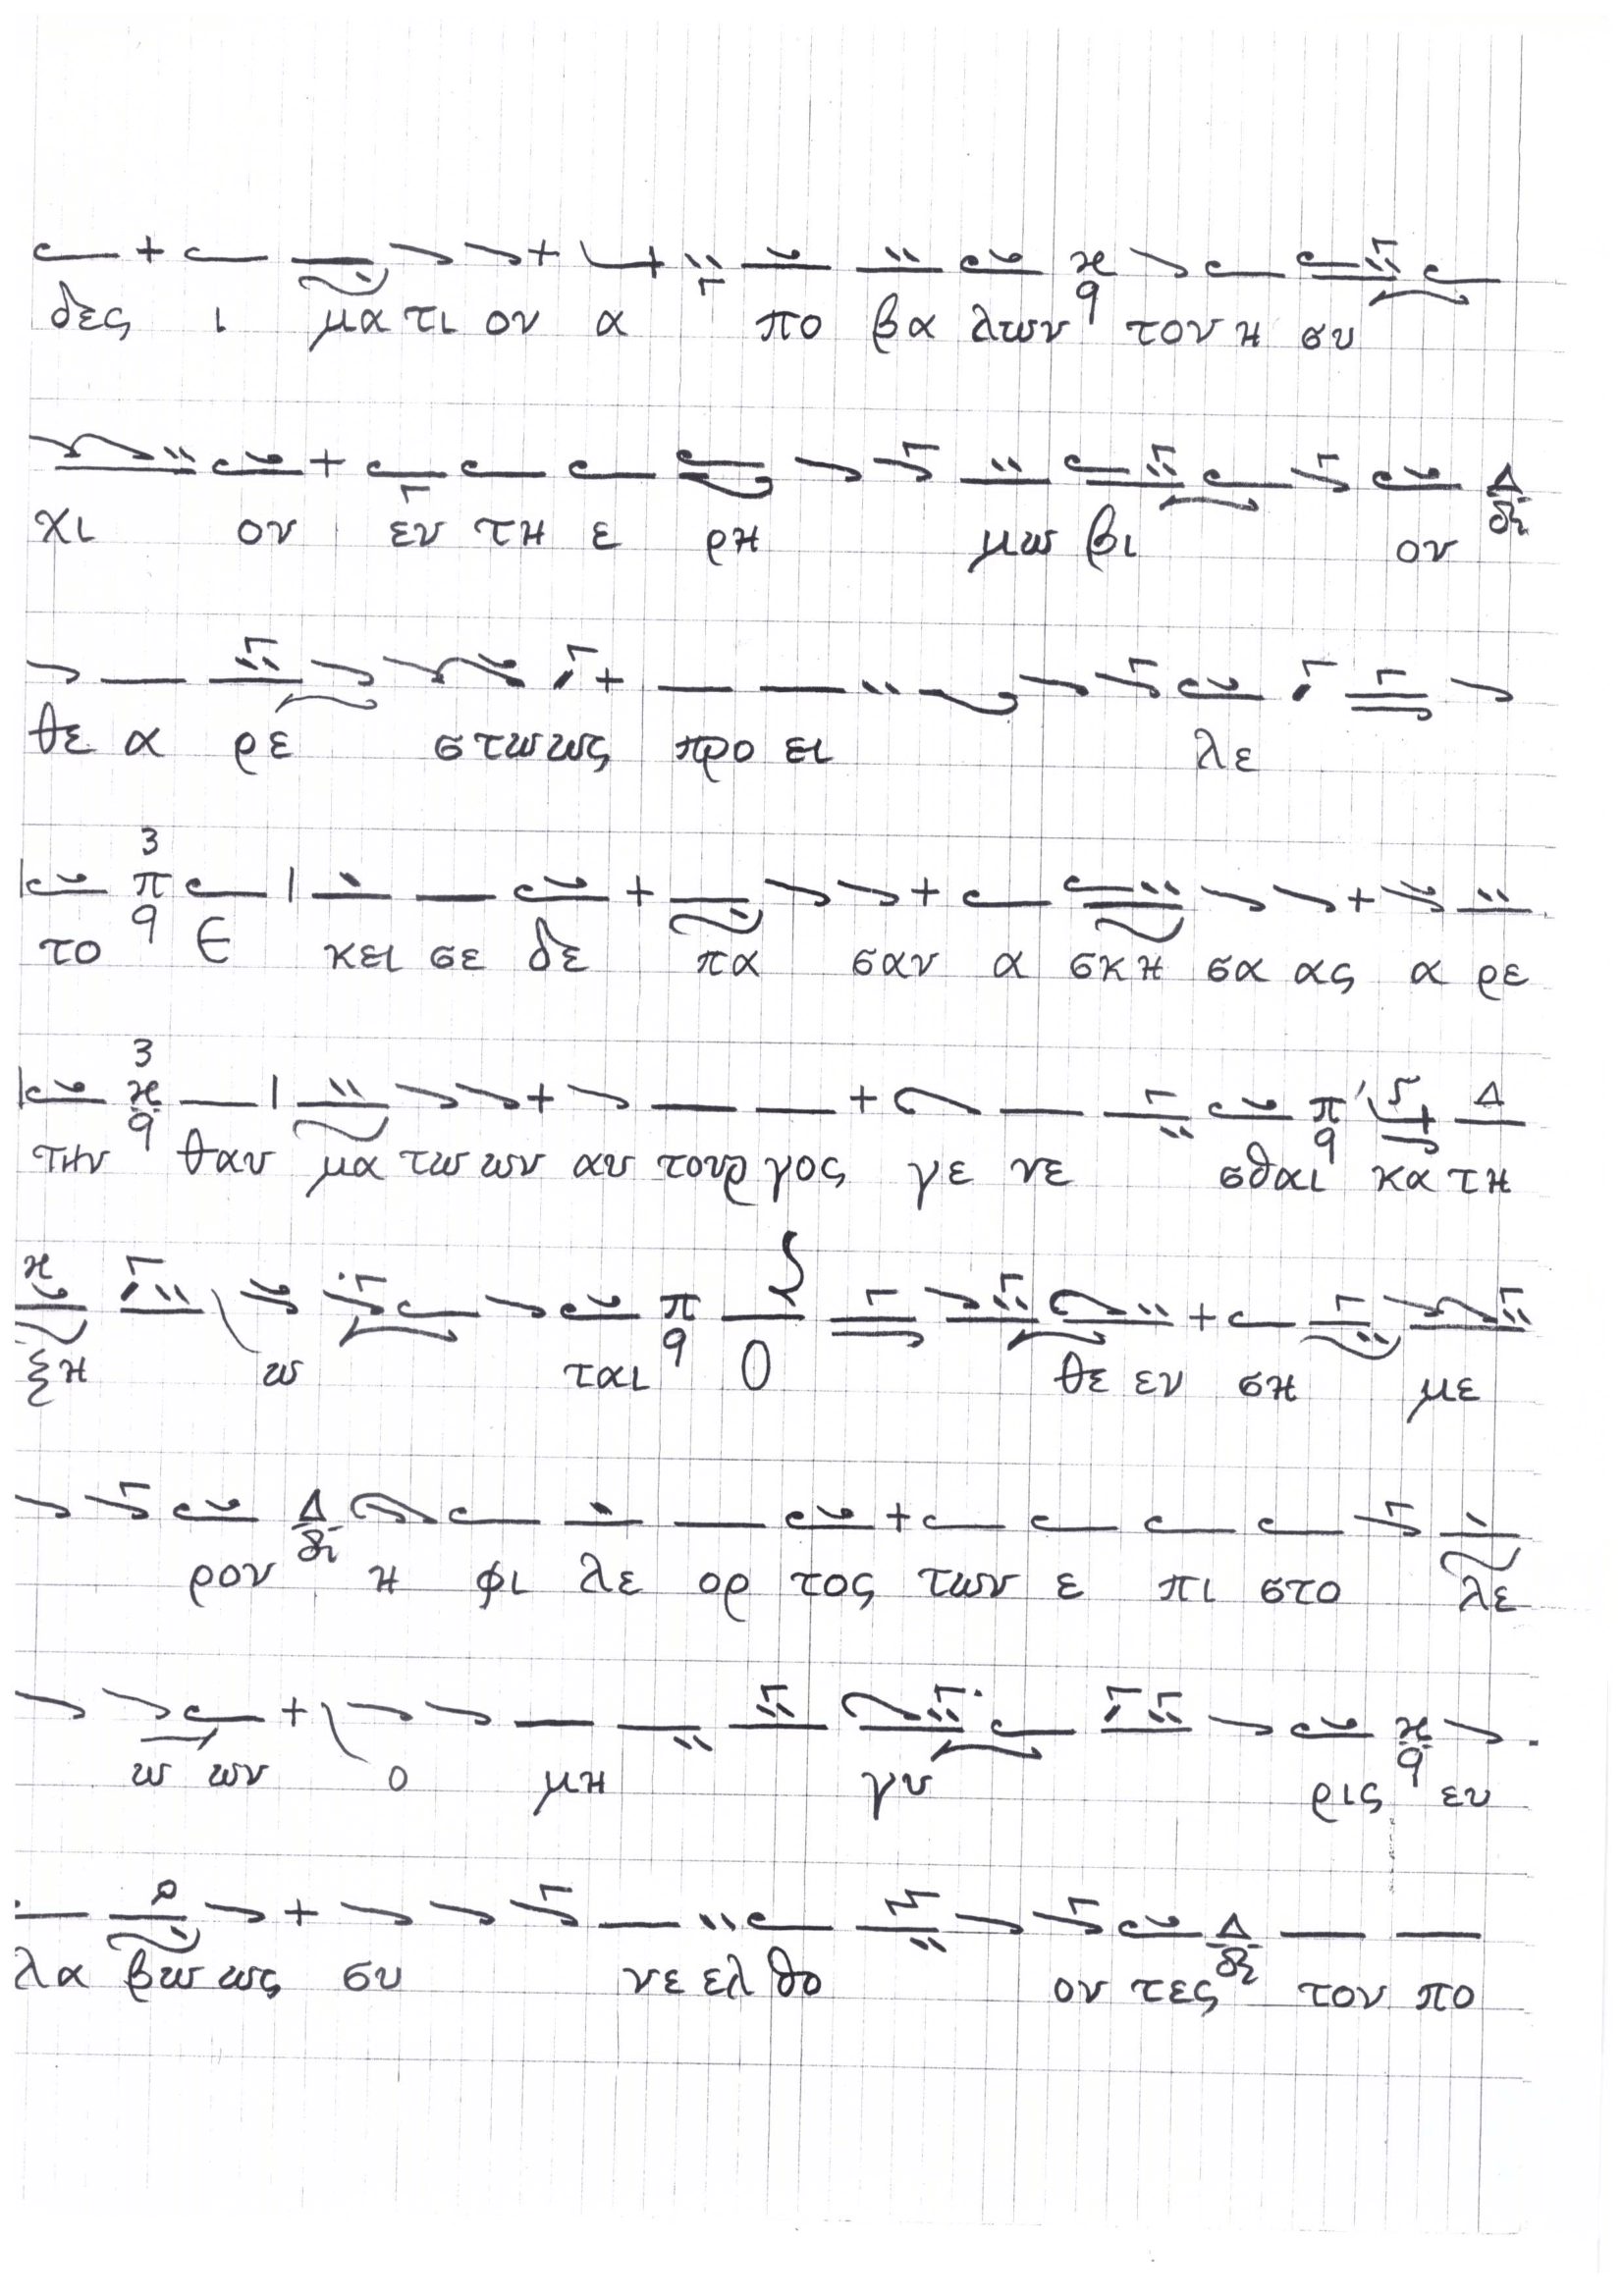 δες ι μα τι ον α πο βα λων τον η συ
χι ον εν τη ε ρη μω βι ον
θε α ρε στω ως προ ει λε
το Ε κει σε δε πα σαν α σκη σα ας α ρε
την θαυ μα τω ων αυ τουρ γος γε νε σθαι κα τη
ξη ω ται Ο θε εν ση με
ρον η φι λε ορ τος των ε πι στο λε
ω ων ο μη γυ ρις ευ
λα βω ως συ νε ελ θο ον τες τον πο